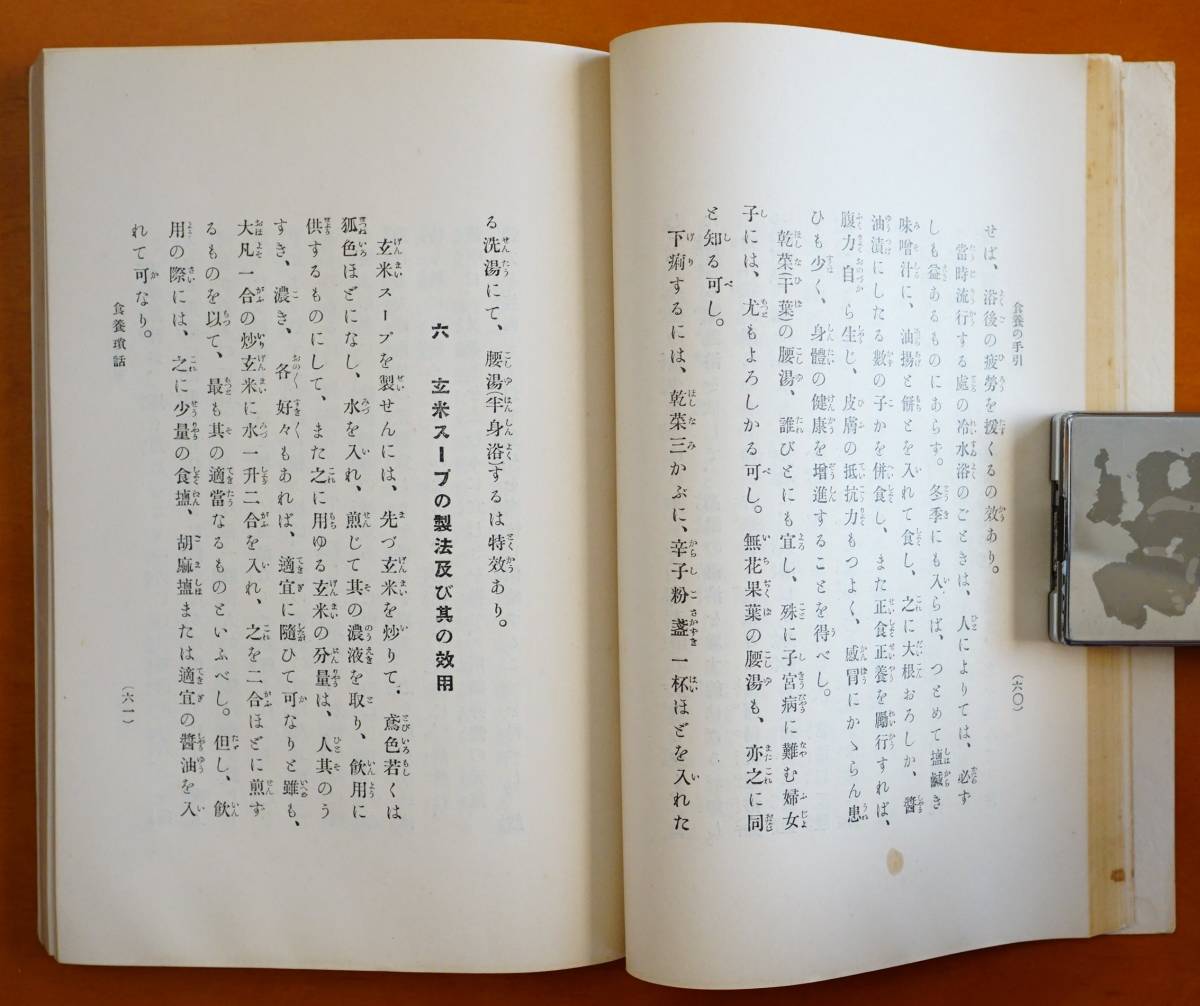 食養の手引
(六〇)
せば、浴後の疲勞を援くるの效あり。
當時流行する處の冷水浴のごときは、人によりては、必ず
しも益あるものにあらず。冬季にも入らば、つとめて塩鹹き
味噌汁に、油揚と餅とを入れて食し、之に大根おろしか、醬
油漬にしたる數の子かを併食し、また正食正養を勵行すれば、
腹力自ら生じ、皮膚の抵抗力もつよく、感冒にかゝらん患
ひも少く、身體の健康を增進することを得べし。
乾菜(干葉)の腰湯、誰びとにも宜し、殊に子宮病に難む婦女
子には、尤もよろしかる可し。無花果葉の腰湯も、亦之に同
と知る可し。
下痢するには、乾菜三かぶに、辛子粉盞一杯ほどを入れた
る洗湯にて、腰湯(半身浴)するは特效あり。
六 玄米スープの製法及び其の效用
玄米スープを製せんには、先づ玄米を炒りて、鳶色若くは
狐色ほどになし、水を入れ、煎じて其の濃液を取り、飮用に
供するものにして、また之に用ゆる玄米の分量は、人其のう
すき、濃き、各好々もあれば、適宜に隨ひて可なりと雖も、
大凡一合の炒玄米に水一升二合を入れ、之を二合ほどに煎す
るものを以て、最も其の適當なるものといふべし。但し、飮
用の際には、之に少量の食塩、胡麻塩または適宜の醬油を入
れて可なり。
食養瑣話
(六一)